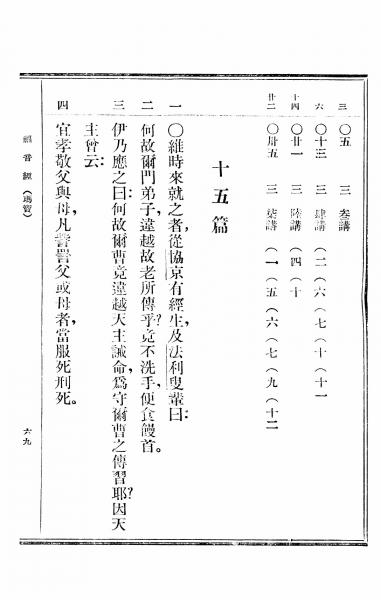 三 〇五 三 叁講
六 〇十三 三 肆講 (二 (六 (七 (十 (十一
十四 〇廿一 三 陸講 (四 (十
廿二 〇卅五 三 柒講 (一 (五 (六 (七 (九 (十二
十五篇
一 〇維時來就之者,從協京有經生,及法利叟輩曰:
二 何故爾門弟子,違越故老所傳乎?竟不洗手,便食饅首。
三 伊乃應之曰:何故爾曹竟違越天主誡命,爲守爾曹之傳習耶?因天
主曾云:
四 宜孝敬父與母,凡訾詈父或母者,當服死刑死。
福音經(瑪竇)
六九